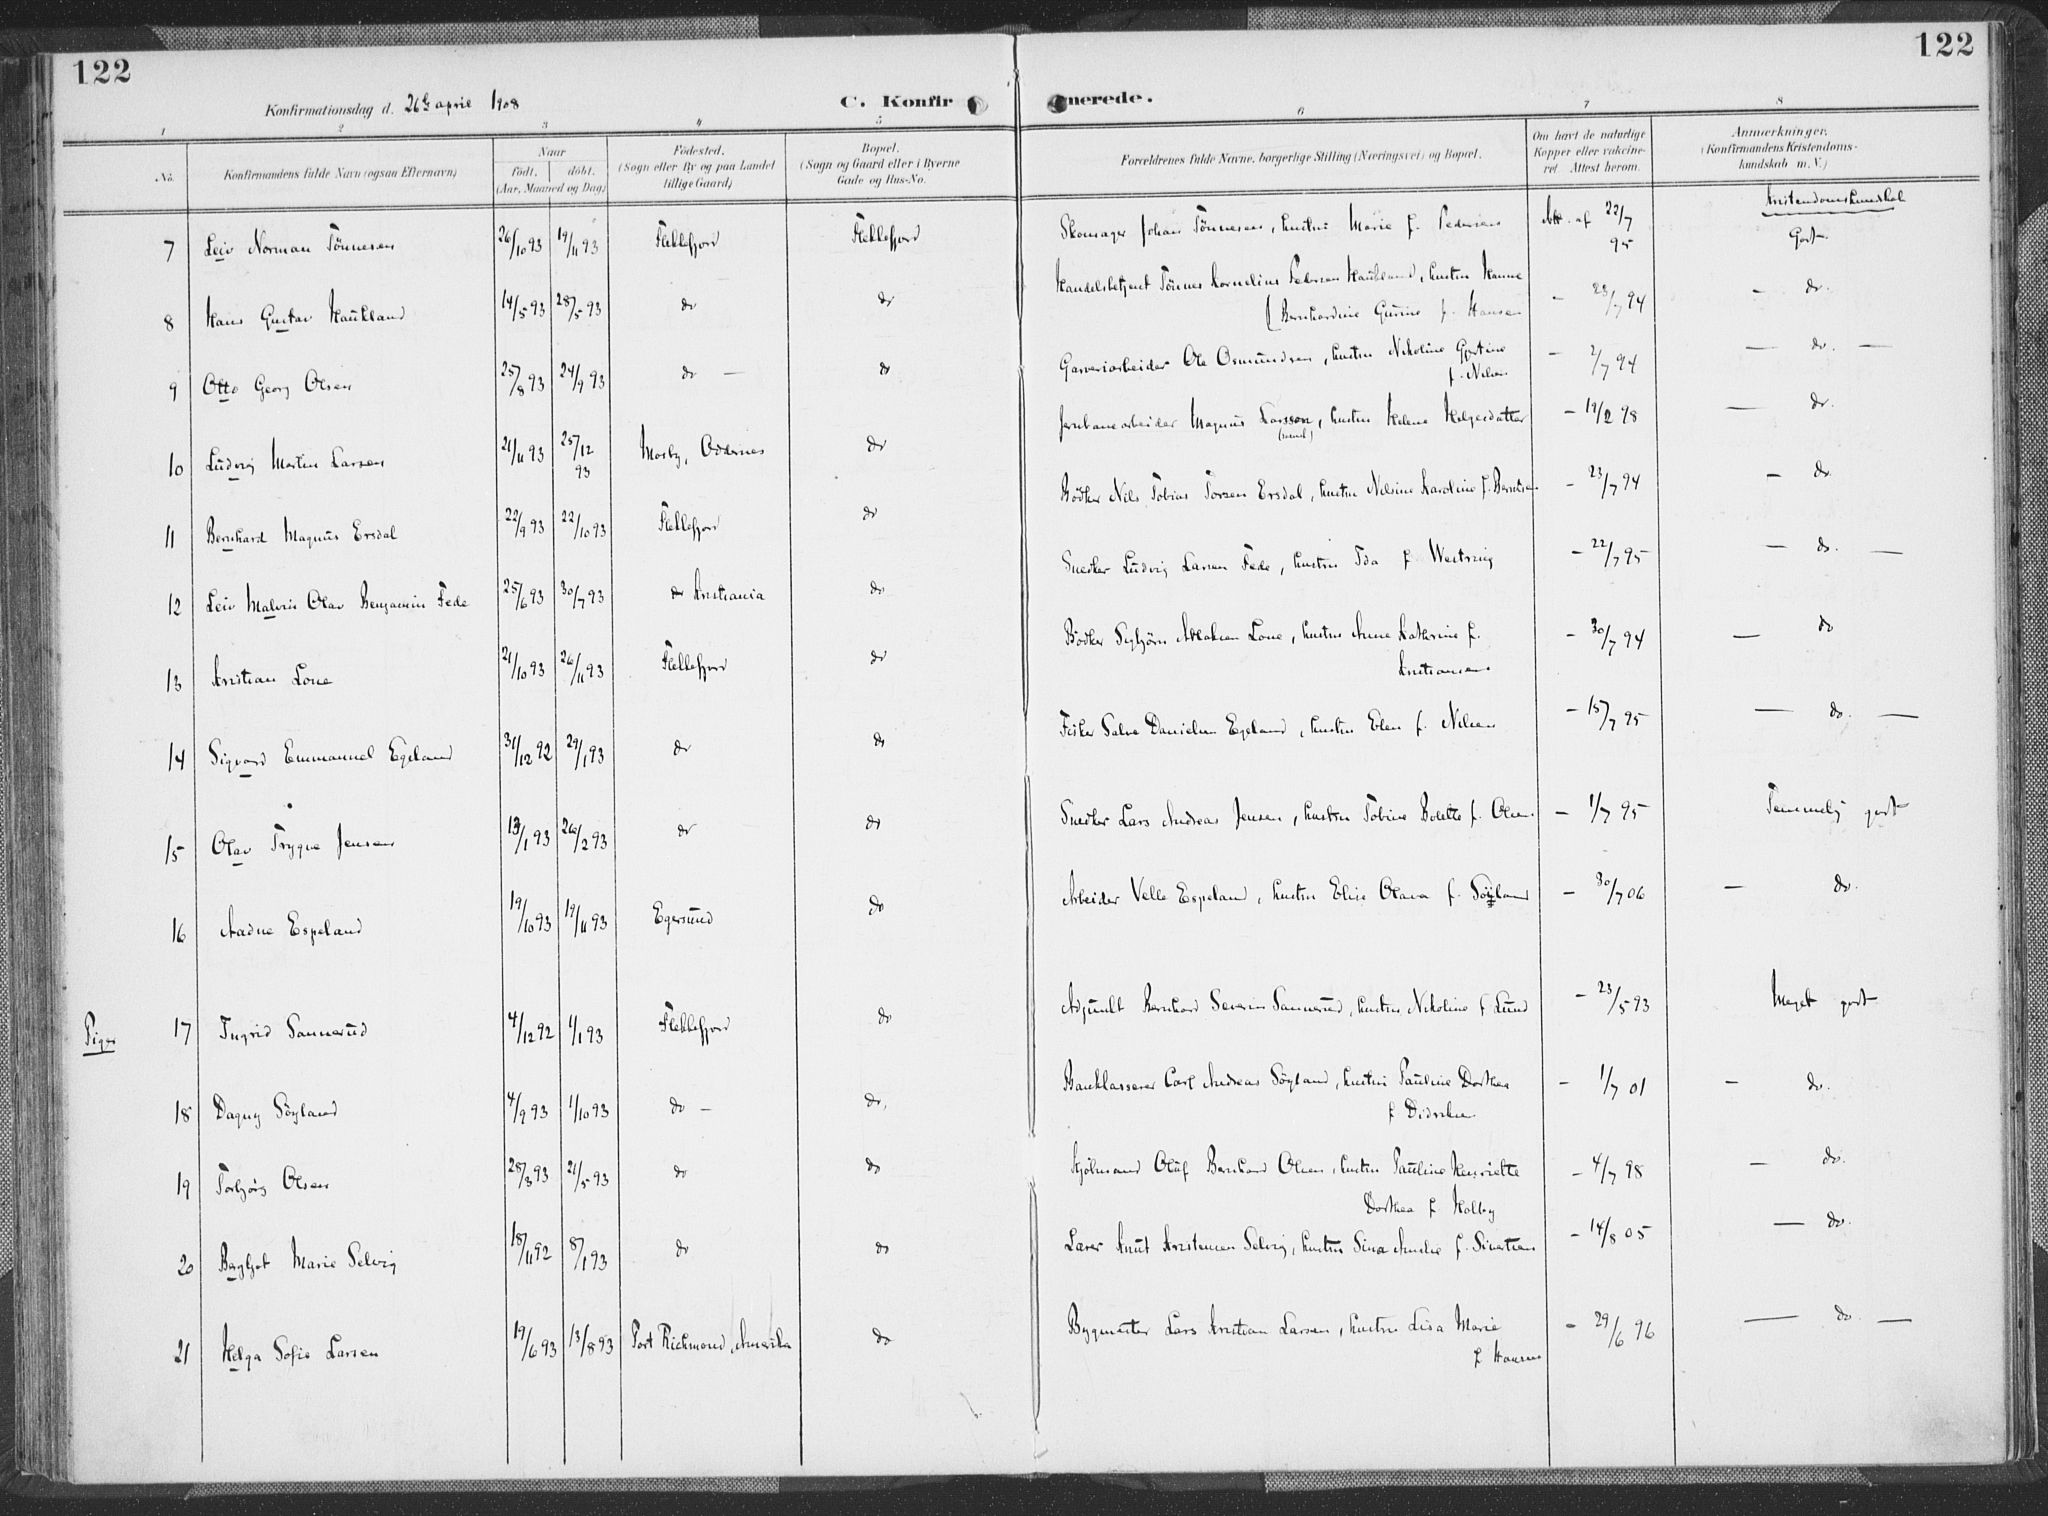 122
122
Konfirmationsdag d. 26de april 1908
C. Konfirmerede.
1 2 3 4 5 6 7 8
No.
Konfirmandens fulde Navn (ogsaa Efternavn)
Naar
født. døbt.
(Aar, Maaned og Dag)
Fødested.
(Sogn eller By og paa Landet
tillige Gaard)
Bopæl.
(Sogn og Gaard eller i Byerne
Gade og Hus-No.
Forældrenes fulde Navne, borgerlige Stilling (Næringsvei) og Bopæl.
Om havt de naturlige
Kopper eller vakcine-
ret Attest herom.
Anmærkninger.
(Konfirmandens Kristendoms-
kundskab m. V.)
Kristendomskundskab
7 Leiv Norman Tönnesen 26/10 93 19/11 93 Flekkefjord Flekkefjord Skomager Johan Tönnesen, hustru Marie f. Pedersen Att. af 22/7 95 Godt
8 Hans Gustav Haukland 14/5 93 28/5 93 do do Handelsbetjent Tönnes Kornelius Pedersen Haukland, hustru Hanne
Bernhardine Gurine f. Hansen — 23/7 94 — do.
9 Otto Georg Olsen 25/8 93 24/9 93 do — do Garveriarbeider Ole Osmundsen, hustru Nikoline Gjertine
f. Nilsen — 2/7 94 — do. —
10 Ludvig Martin Larsen 21/11 93 25/12 93 Mosby, Oddernes do Jernbanearbeider Magnus Larsson, hustru Helene Helgesdatter — 19/2 98 — do.
(svensk)
11 Bernhard Magnus Ersdal 22/9 93 22/10 93 Flekkefjord do Bödker Nils Tobias Torsen Ersdal, hustru Nilsine Karoline f. Berntsen — 23/7 94 — do
12 Leiv Malvin Olav Benjamin Fede 25/6 93 30/7 93 Kristiania do Snedker Ludvig Larsen Fede, hustru Ida f. Westrig — 22/7 95 — do. —
13 Kristian Lone 21/10 93 26/11 93 Flekkefjord do Bödker Sigbjörn Atlaksen Lone, hustru Anne Kathrine f.
Kristiansen — 30/7 94 — do
14 Sigvard Emmanuel Egeland 31/12 92 29/1 93 do do Fisker Salve Danielsen Egeland, hustru Elen f. Nilsen — 15/7 95 — do. —
15 Olav Trygve Jensen 13/1 93 26/2 93 do do Snedker Lars Andreas Jensen, hustru Tobine Bolette f. Olsen — 1/7 95 Temmelig godt
16 Aadne Espeland 19/10 93 19/11 93 Egersund do Arbeider Velle Espeland, hustru Elise Olava f. Söyland — 30/7 06 — do.
Piger
17 Ingrid Sannerud 4/12 92 1/1 93 Flekkefjord do Adjunkt Bernhard Severin Sannerud, hustru Nikoline f Lund — 23/5 93 Meget godt
18 Dagny Söyland 4/9 93 1/10 93 do — do, Bankkasserer Carl Andreas Söyland, hustru Pauline Dorthea
f Didriksen — 1/7 01 — do.
19 Torbjörg Olsen 28/3 93 21/5 93 do do Sjömand Oluf Bernhard Olsen, hustru Pauline Henriette
Dorthea f Holby — 4/7 98 — do.
20 Bergljot Marie Selvig 18/11 92 8/1 93 do do Lærer Knut Kristensen Selvig, hustru Sina Amelie f. Sivertsen — 14/8 05 — do.
21 Helga Sofie Larsen 19/6 93 13/8 93 Port Richmond, Amerika do Bygmester Lars Kristian Larsen, hustru Lisa Marie
f Hansen — 29/6 96 — do. —